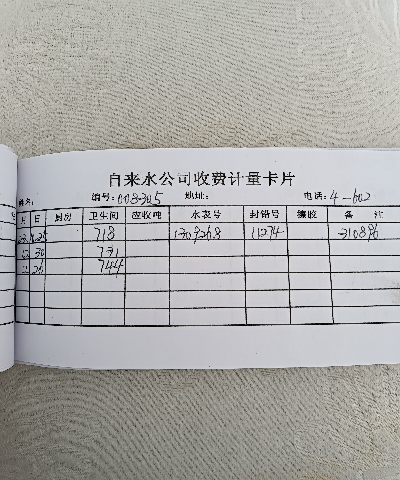 自来水公司收费计量卡片
姓名: 编号:008305 地址: 电话:4-602
月 日 厨房 卫生间 应收吨 水表号 封铅号 缴胶 备 注
25 718 1309268 11274 310896
30 731
26 744